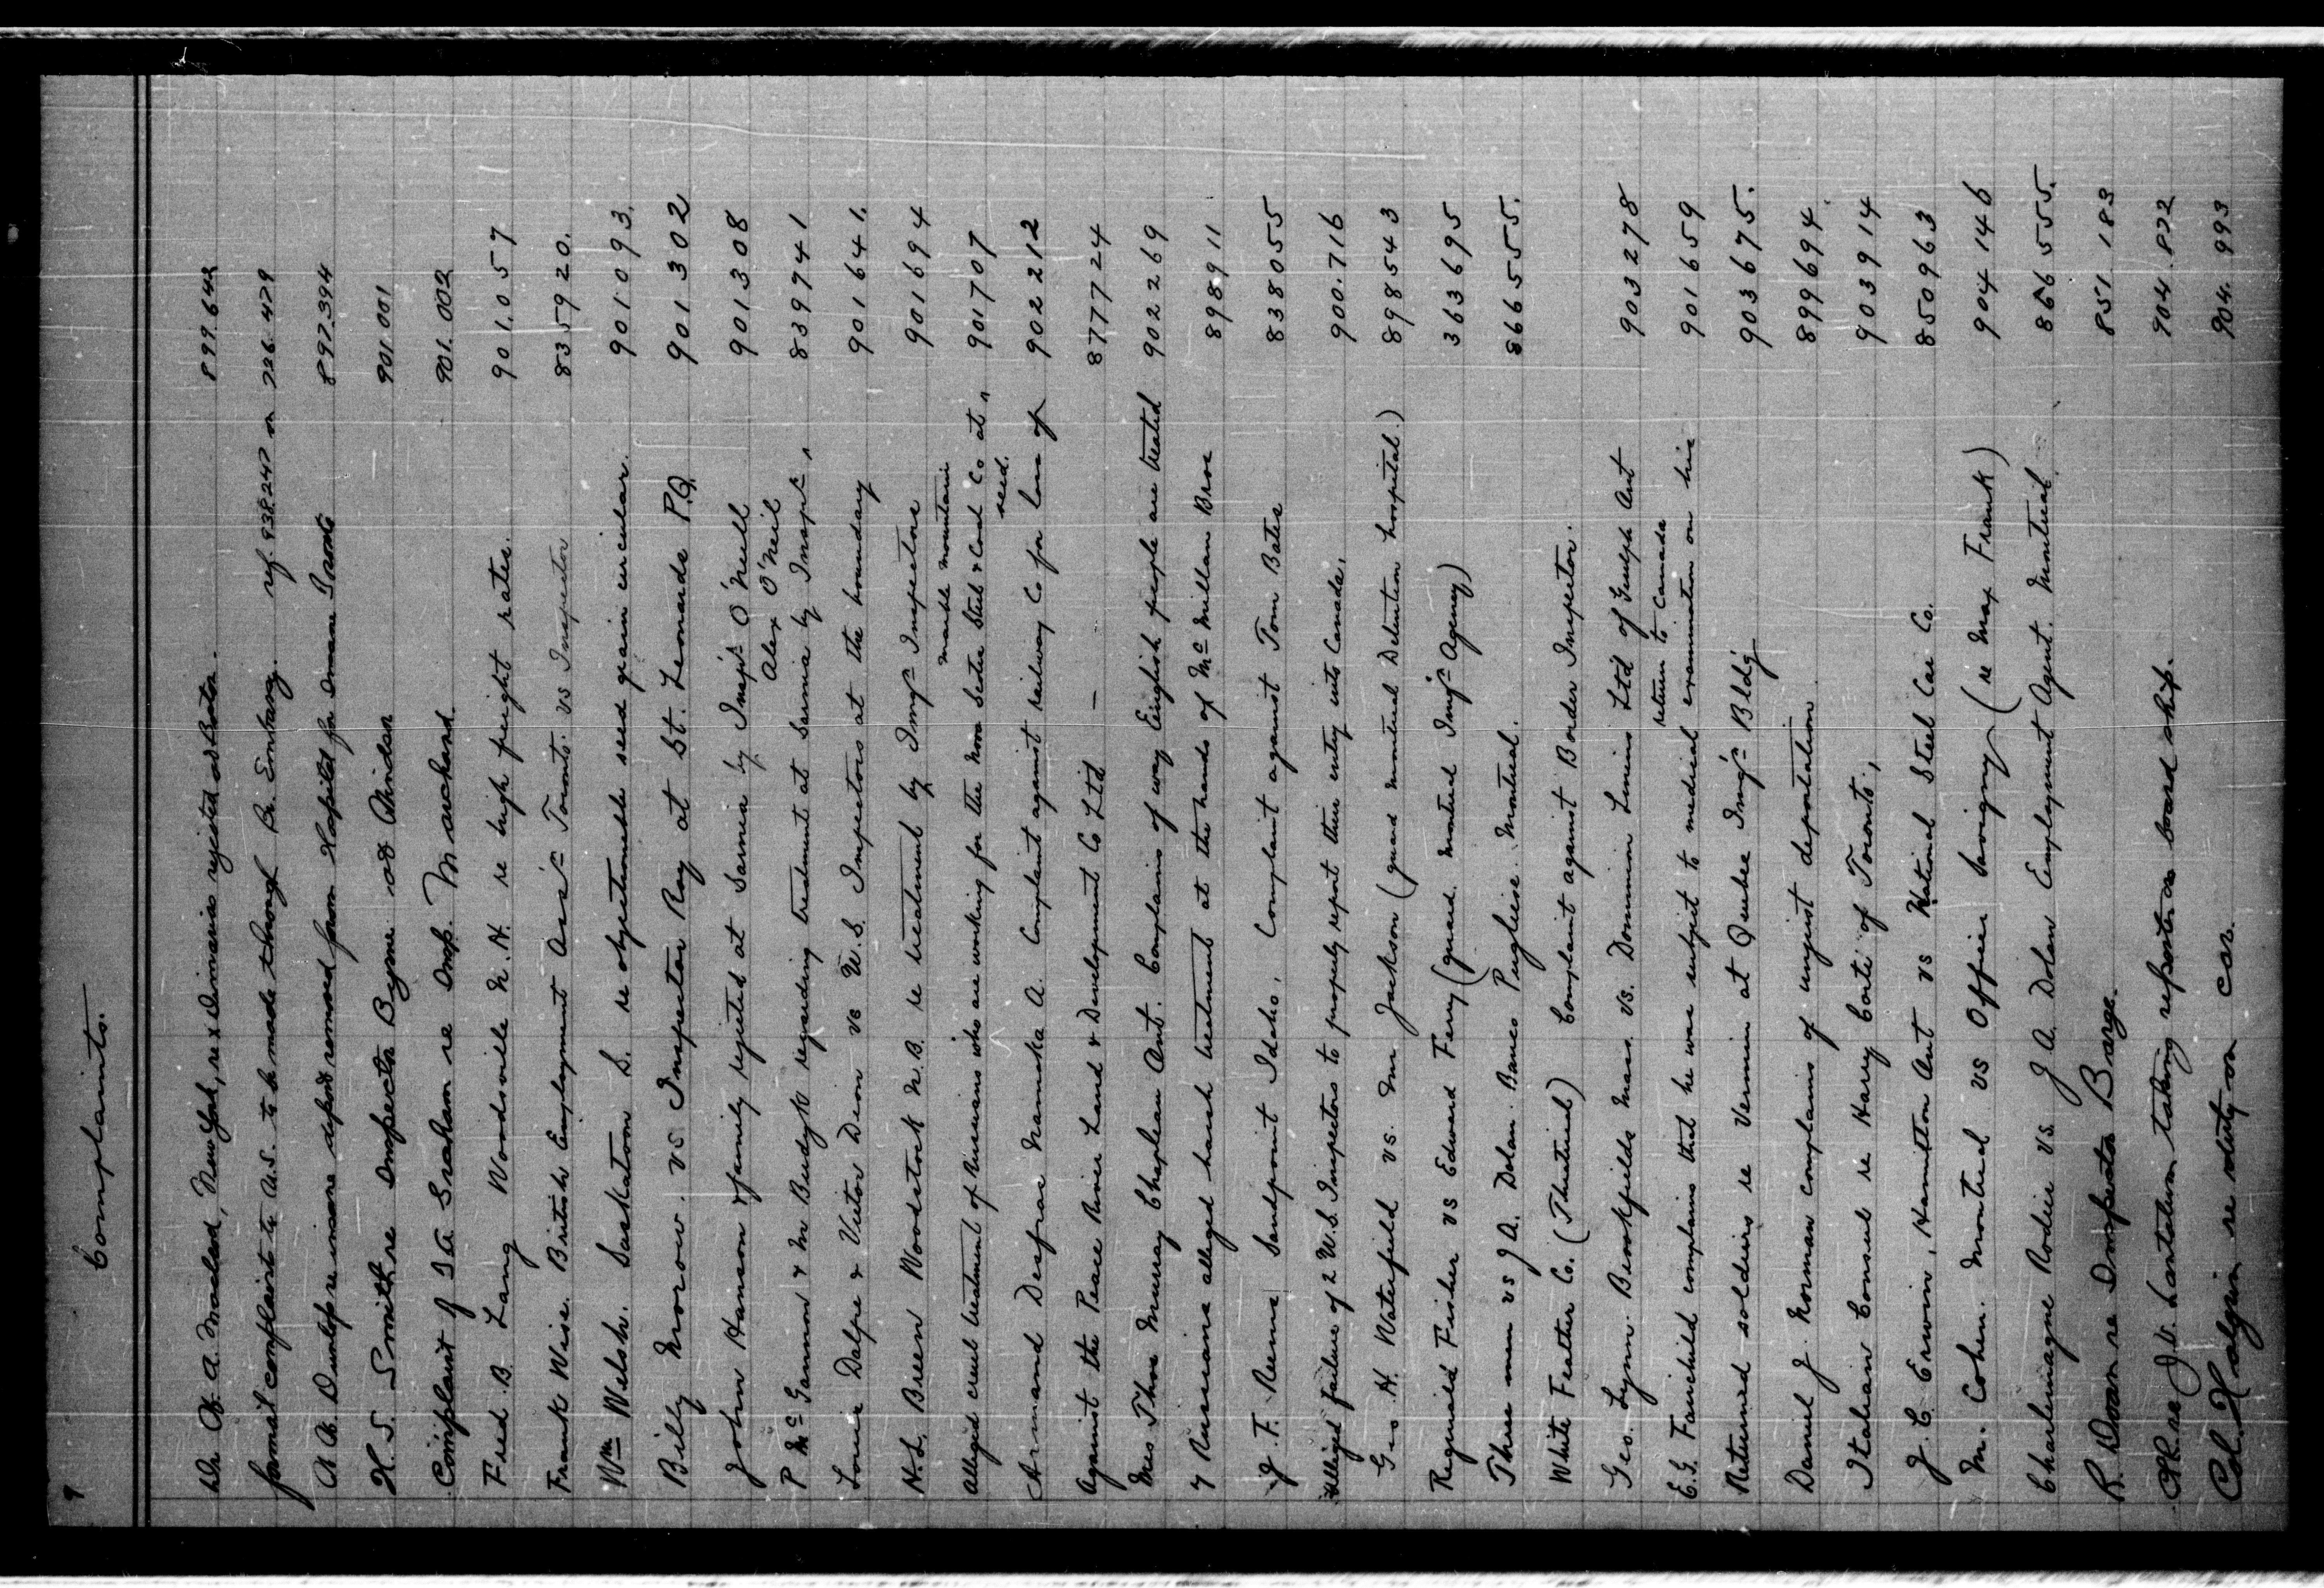 9
Complaints.
Dr. A. Macleod, New York, re x Dinnario rejected ad Boston. 899.642
formal complaint to U.S. to be made through Br. Embassy. ref. 938247 on 226.479
A. A. Dunlop re insane deport removed from Hospital for Insane Toronto 897.394
H. S. Smith re Inspector Byrne at Windsor 901 001
Complaint of J G Graham re Insp. Marchand. 901.002
Fred. B. Lang Woodsville N.H. re high freight rates. 901.057
Frank Wise. British Employment Ass'n Toronto. vs Inspector 835920.
Wm Welsh. Saskatoon S. re objectionable seed grain circular. 901093.
Billy Morrow. vs Inspector Roy at St. Leonards P.Q. 901302
John Hanson & family rejected at Sarnia by Imm'gr O'Neill 901308
Alex O'Neil
P McGannon & M Budyk regarding treatment at Sarnia by Inspr " 839741
Louis Dalpe & Victor Dion vs U.S. Inspectors at the boundary 901641.
H. L. Breen Woodstock N.B. re treatment by Img'n Inspectors 901694
marble mountain
Alleged cruel treatment of Russians who are working for the Nova Scotia Steel & Coal Co at " 901707
seed.
Armand Desfrac Kamouska A. Complaint against railway Co for loss of 902212
Against the Peace River Land & Development Co Ltd — 877724
Mrs Thos Murray Chapleau Ont. Complains of way English people are treated 902269
7 Russians alleged harsh treatment at the hands of McMillan Bros 898911
J. F. Reems Sandpoint Idaho, Complaint against Tom Bates 838055
Alleged failure of 2 U.S. Inspectors to properly report their entry into Canada, 900.716
Geo. H. Waterfield vs. Mr Jackson (guard montreal Detention hospital.) 898543
Reginald Fisher vs Edward Ferry (guard montreal Img'n Agency) 363695
Three men vs J A. Dolan. Banco Pugliese. Montreal. 866555.
White Feather Co. (Theatrical) Complaint against Border Inspector.
Geo. Lynn. Brookfields Mass. vs. Dominion Linens Ltd of Guelph Ont 903278
return to Canada
E. G. Fairchild complains that he was subject to medical examination on his 901659
Returned soldiers re Vermin at Quebec Img'n Bldg 903675.
Daniel J. Norman complains of unjust deportation 899694.
Italian Consul re Harry Corti of Toronto., 903914
J. C. Erwin, Hamilton Ont vs National Steel Car Co. 850963
M. Cohen. Montreal vs Officer Savigny (re Max Frank) 904146
Charlemagne Rodier vs. J A. Dolan Employment Agent. Montreal 866555.
R. Doan re Inspector Barge. 851 183
CPR re J. V. Lantalum taking reports on board ship. 904.822
Col. Halgin re duty on car. 904.993